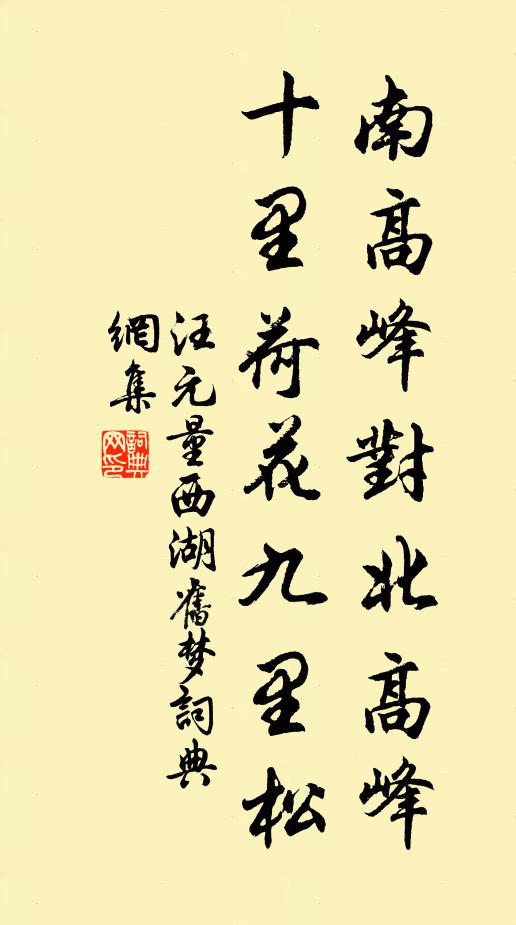 南高峰對北高峰
十里荷花九里松
汪元量西湖舊梦詞典
網集
詞典
网印